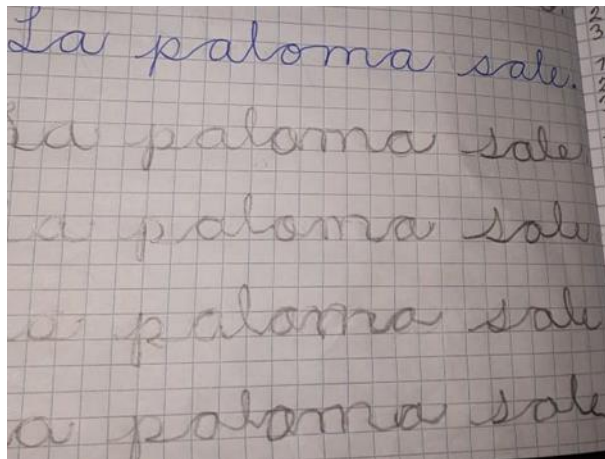 La paloma sale.
La paloma sale
a paloma sale
a paloma sale
a paloma sale